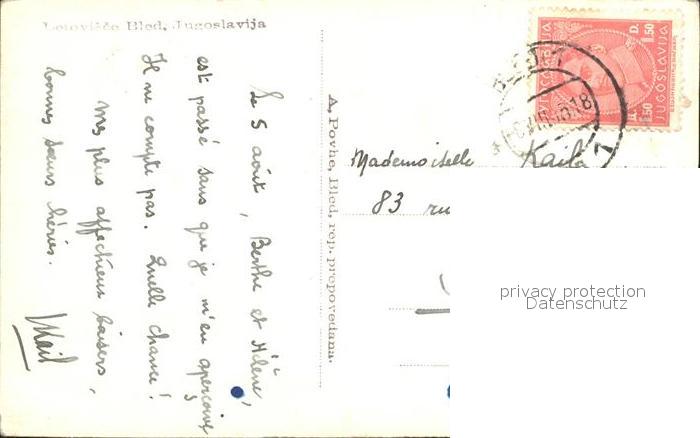 Letovišče Bled, Jugoslavija
Le 5 août, Berthe et Hélène,
est passé sans que je m'en aperçoive
Il ne compte pas. Quelle chance!
Mes plus affectueux baisers,
bonnes sœurs chéries.
A. Povhe, Bled, rep. prepovedana.
JUGOSLAVIJA
1.50
D.
1.50
BLED 1
Mademoiselle Kaila
83 rue
privacy protection
Datenschutz